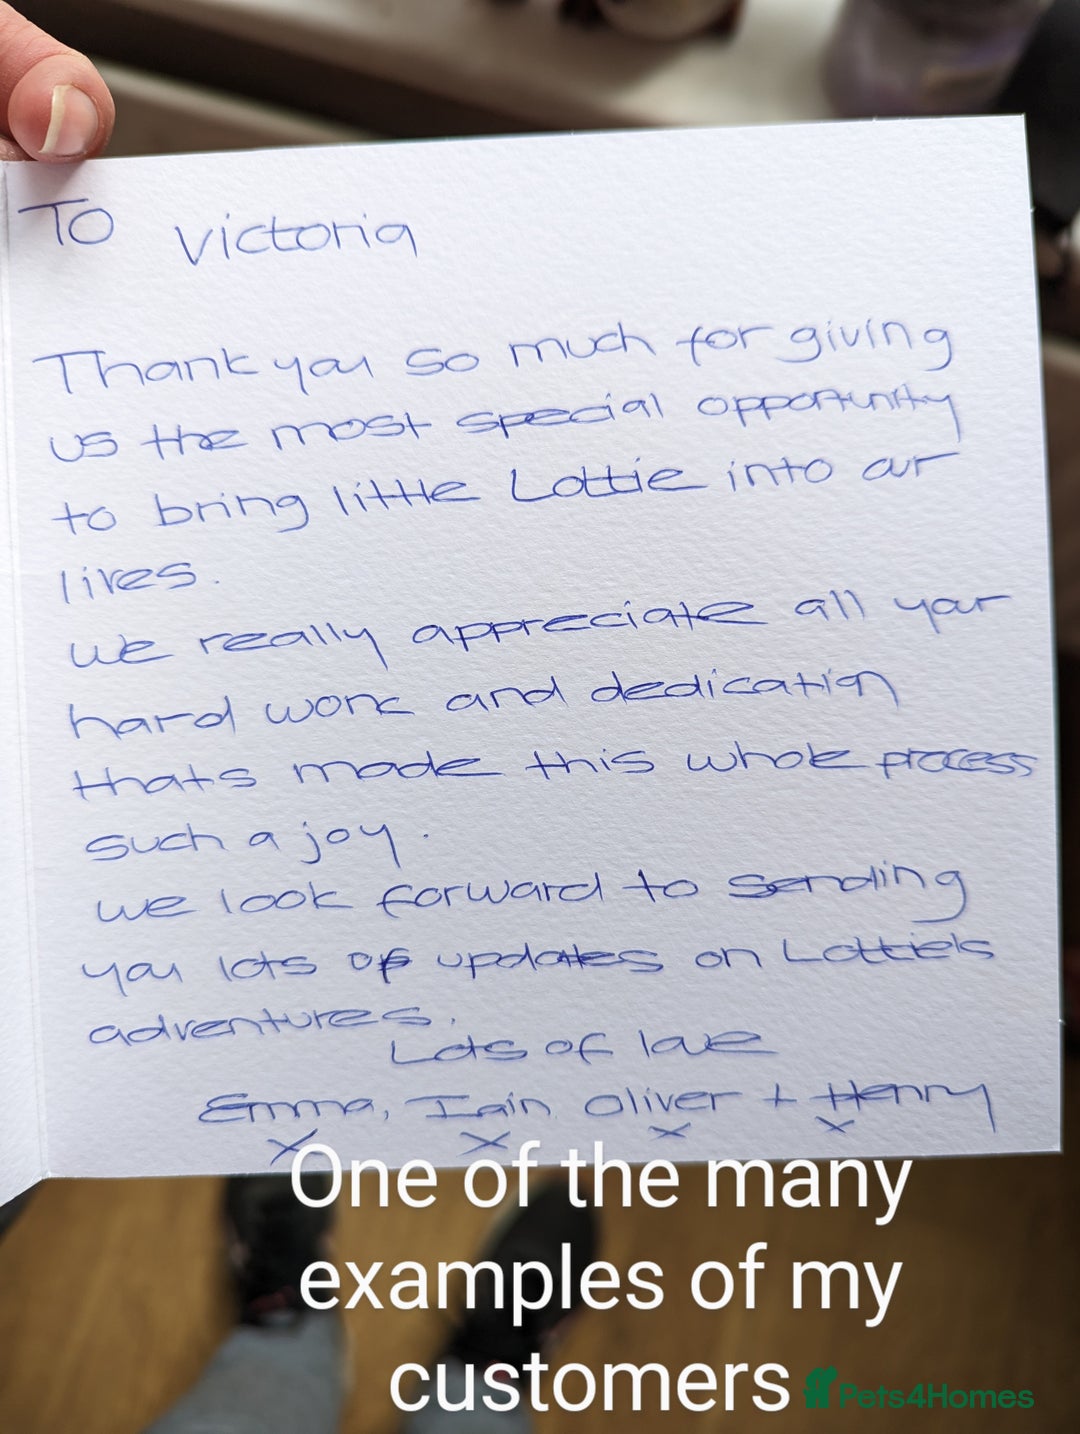 To Victoria
Thank you so much for giving
us the most special opportunity
to bring little Lottie into our
lives.
we really appreciate all your
hard work and dedication
thats made this whole process
such a joy.
we look forward to sending
you lots of updates on Lottie's
adventures.
Lots of love
Emma, Iain, Oliver + Henry
x x x x
One of the many
examples of my
customers
Pets4Homes